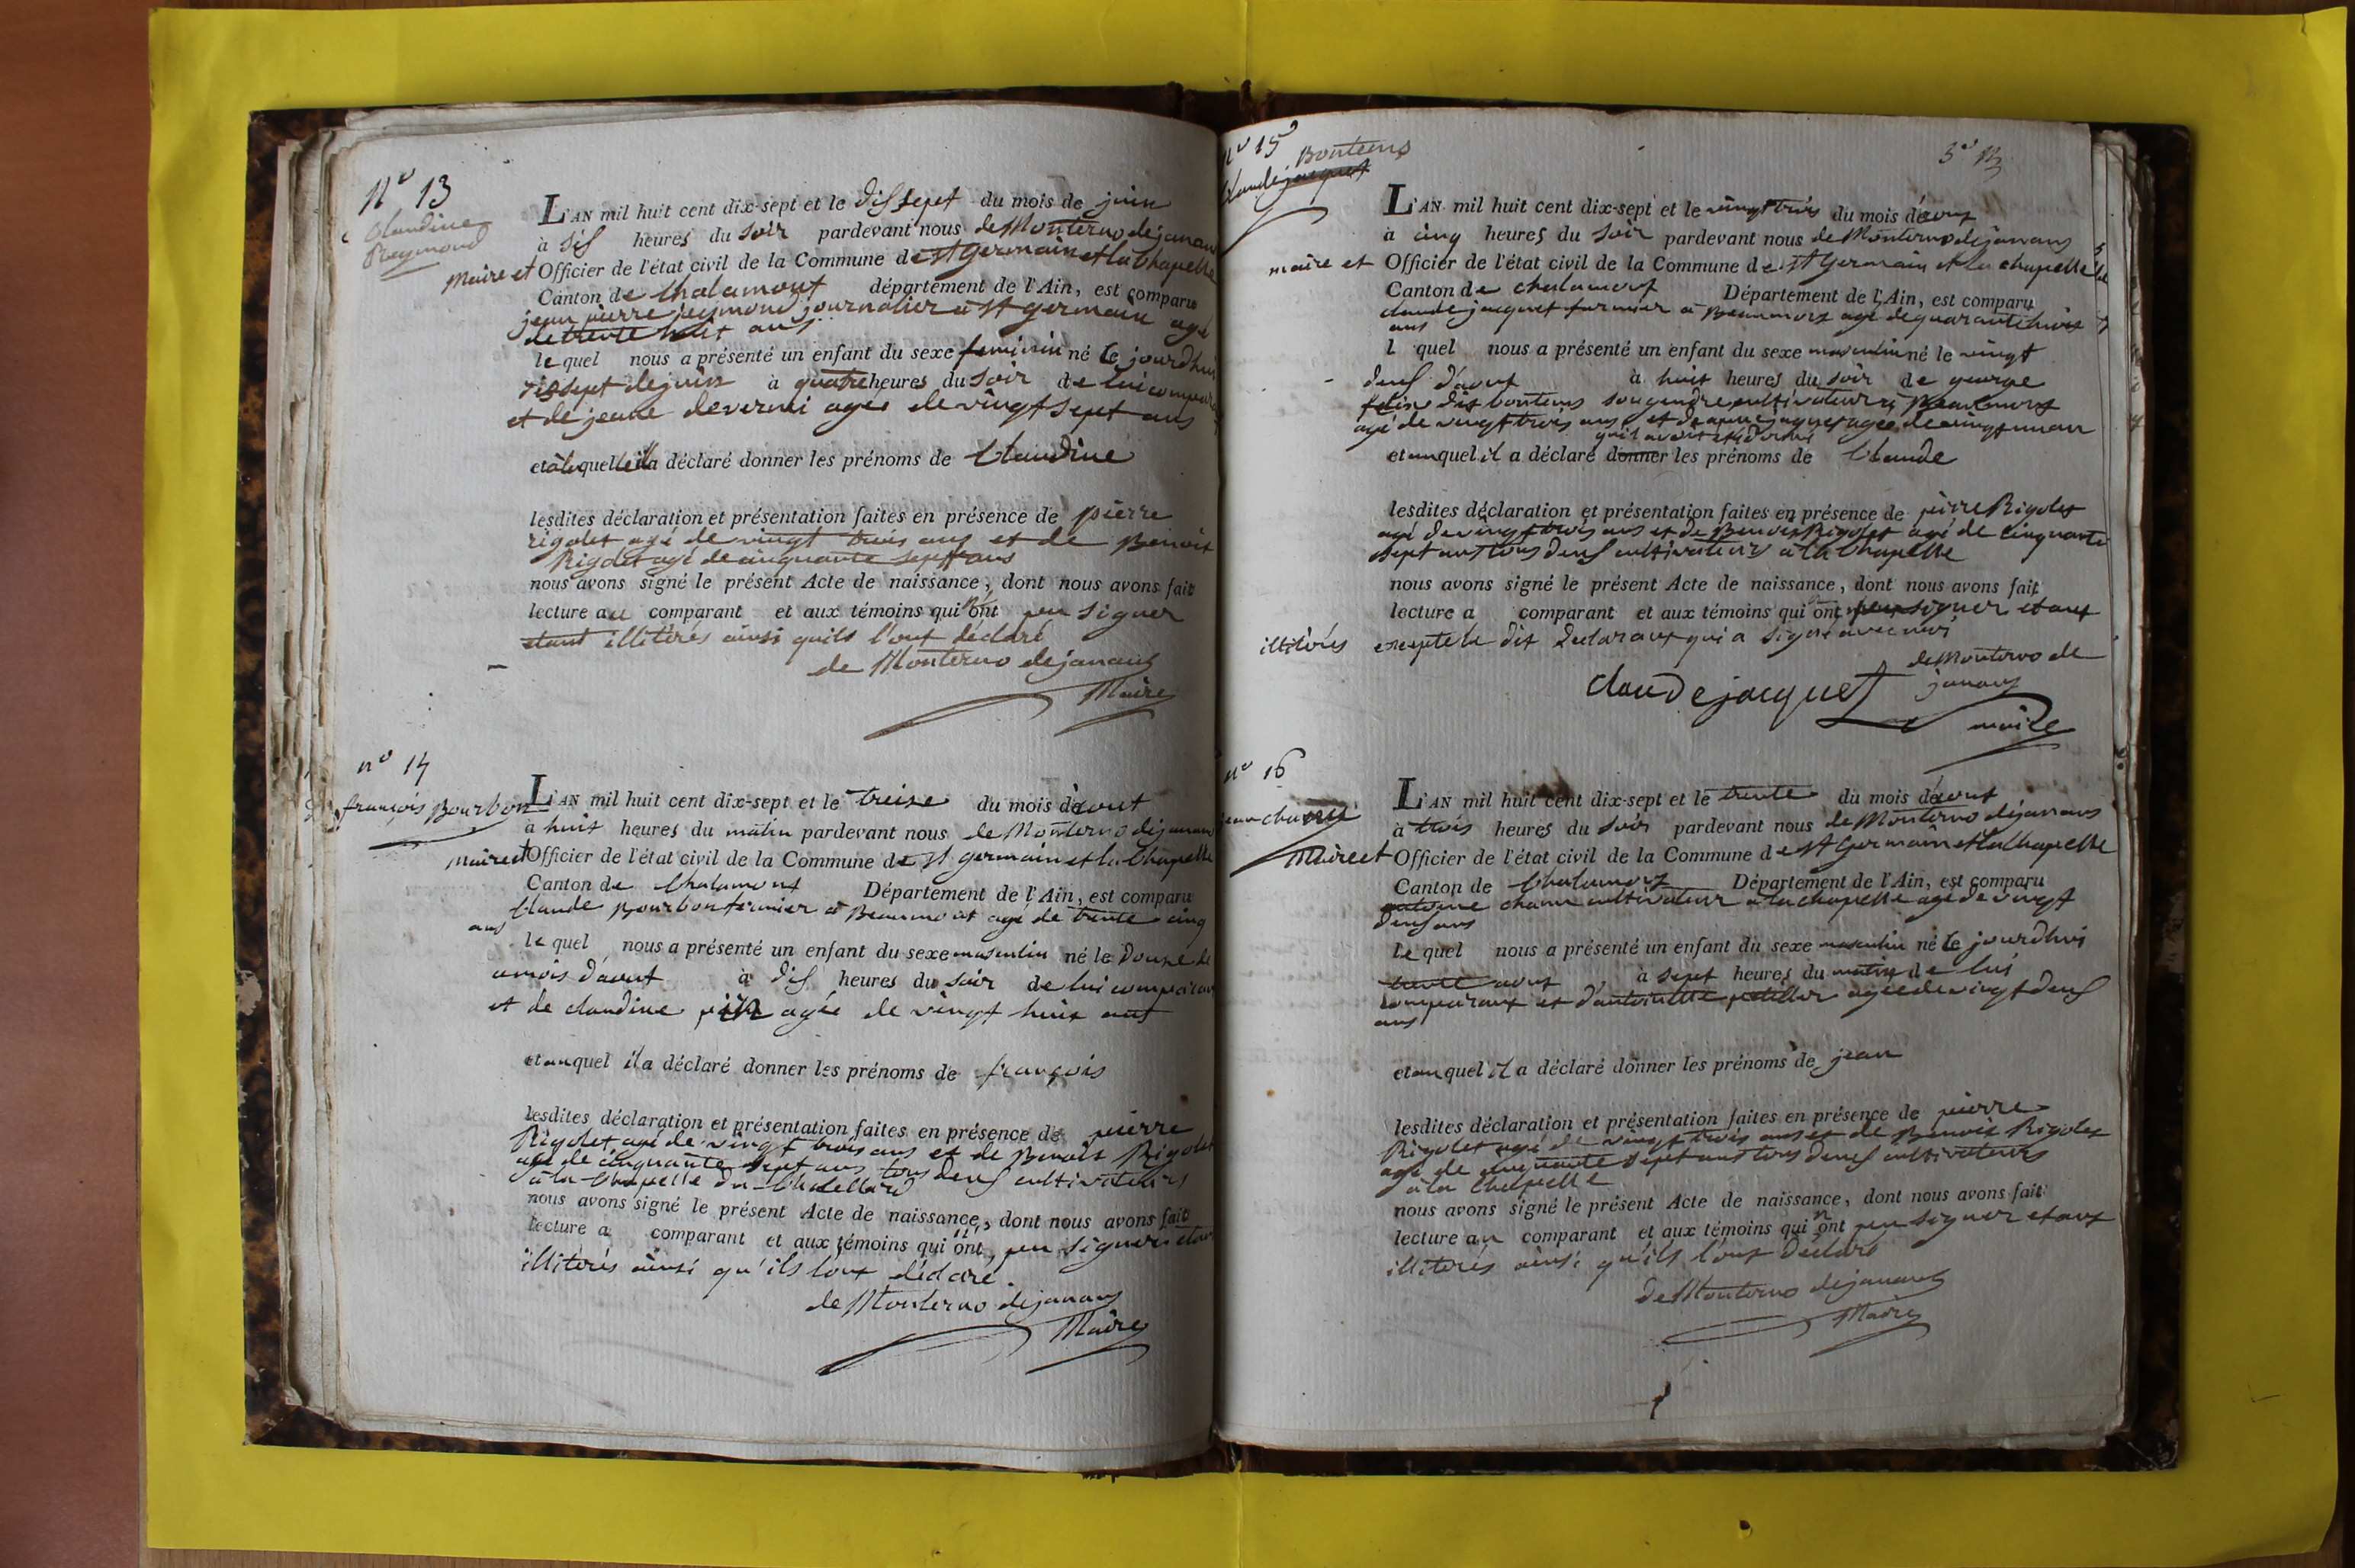 N° 13
Claudine
Reymond
L'AN mil huit cent dix-sept et le dissept du mois de juin
à sis heures du soir pardevant nous de Monterno dejanans
Maire et Officier de l'état civil de la Commune de st Germain et la Chapelle
Canton de Chalamont département de l'Ain, est comparu
jean pierre reymond journalier a st germain agé
de trente huit ans
le quel nous a présenté un enfant du sexe feminin né le jourdhui
dissept de juin à quatre heures du soir de lui compara
et de jeane devernei agée de vingt sept ans
et à la quelle il a déclaré donner les prénoms de Claudine
lesdites déclaration et présentation faites en présence de pierre
rigolet agé de vingt trois ans et de Benoit
Rigolet agé de cinquante sept ans
nous avons signé le présent Acte de naissance, dont nous avons fait
lecture au comparant et aux témoins qui n'ont peu signer
etant illitérés ainsi quils l'ont déclaré
de Monterno dejanans
Maire
n° 14
françois Bourbon
L'AN mil huit cent dix-sept et le treise du mois d'aout
à huit heures du matin pardevant nous de Monterno dejanans
Maire et Officier de l'état civil de la Commune de st germain et la Chapelle
Canton de Chalamont Département de l'Ain, est comparu
Claude Bourbon fermier a Beaumont agé de trente cinq
ans
le quel nous a présenté un enfant du sexe masculin né le Douse de
mois d'aout à dis heures du soir de lui comparant
et de claudine agée de vingt huit ans
et au quel il a déclaré donner les prénoms de françois
lesdites déclaration et présentation faites en présence de pierre
Rigolet agé de vingt trois ans et de Benoit Rigolet
agé de cinquante sept ans tous deus cultivateurs
à la Chapelle du Chatellard
nous avons signé le présent Acte de naissance, dont nous avons fait
lecture a comparant et aux témoins qui n'ont peu signer etant
illitérés ainsi qu'ils l'ont déclaré.
de Monterno dejanans
Maire
n° 15
Bontems
Claude jacquet
3e
L'AN mil huit cent dix-sept et le vingt trois du mois d'aout
à cinq heures du soir pardevant nous de Monterno dejanans
maire et Officier de l'état civil de la Commune de st Germain et la chapelle
Canton de chalamont Département de l'Ain, est comparu
claude jacquet fermier a Beaumont agé de quarante huit
ans
l quel nous a présenté un enfant du sexe masculin né le vingt
deus d'aout à huit heures du soir de george
dit bontems son gendre cultivateur a Beaumont
agé de vingt trois ans et de jacquet agée de vingt un an
et auquel il a déclaré donner les prénoms de Claude
lesdites déclaration et présentation faites en présence de pierre Rigolet
agé de vingt trois ans et de Benoit Rigolet agé de cinquante
sept ans tous deus cultivateurs a la Chapelle
nous avons signé le présent Acte de naissance, dont nous avons fait
lecture a comparant et aux témoins qui n'ont peu signer etant
illitérés excepté le dit declarant qui a signé avec moi
de Monterno de
janans
claude jacquet
maire
n° 16
jean
L'AN mil huit cent dix-sept et le trente du mois d'aout
à trois heures du soir pardevant nous de Monterno dejanans
Maire et Officier de l'état civil de la Commune de st Germain et la Chapelle
Canton de Chalamont Département de l'Ain, est comparu
antoine cultivateur a la chapelle agé de vingt
deus ans
le quel nous a présenté un enfant du sexe masculin né le jourdhui
trente aout à sept heures du matin de lui
comparant et d'antoinette agée de vingt deus
ans
et au quel il a déclaré donner les prénoms de jean
lesdites déclaration et présentation faites en présence de pierre
Rigolet agé de vingt trois ans et de Benoit Rigolet
agé de cinquante sept ans tous deus cultivateurs
a la Chapelle
nous avons signé le présent Acte de naissance, dont nous avons fait
lecture au comparant et aux témoins qui n'ont peu signer etant
illitérés ainsi qu'ils l'ont déclaré
de Monterno dejanans
Maire